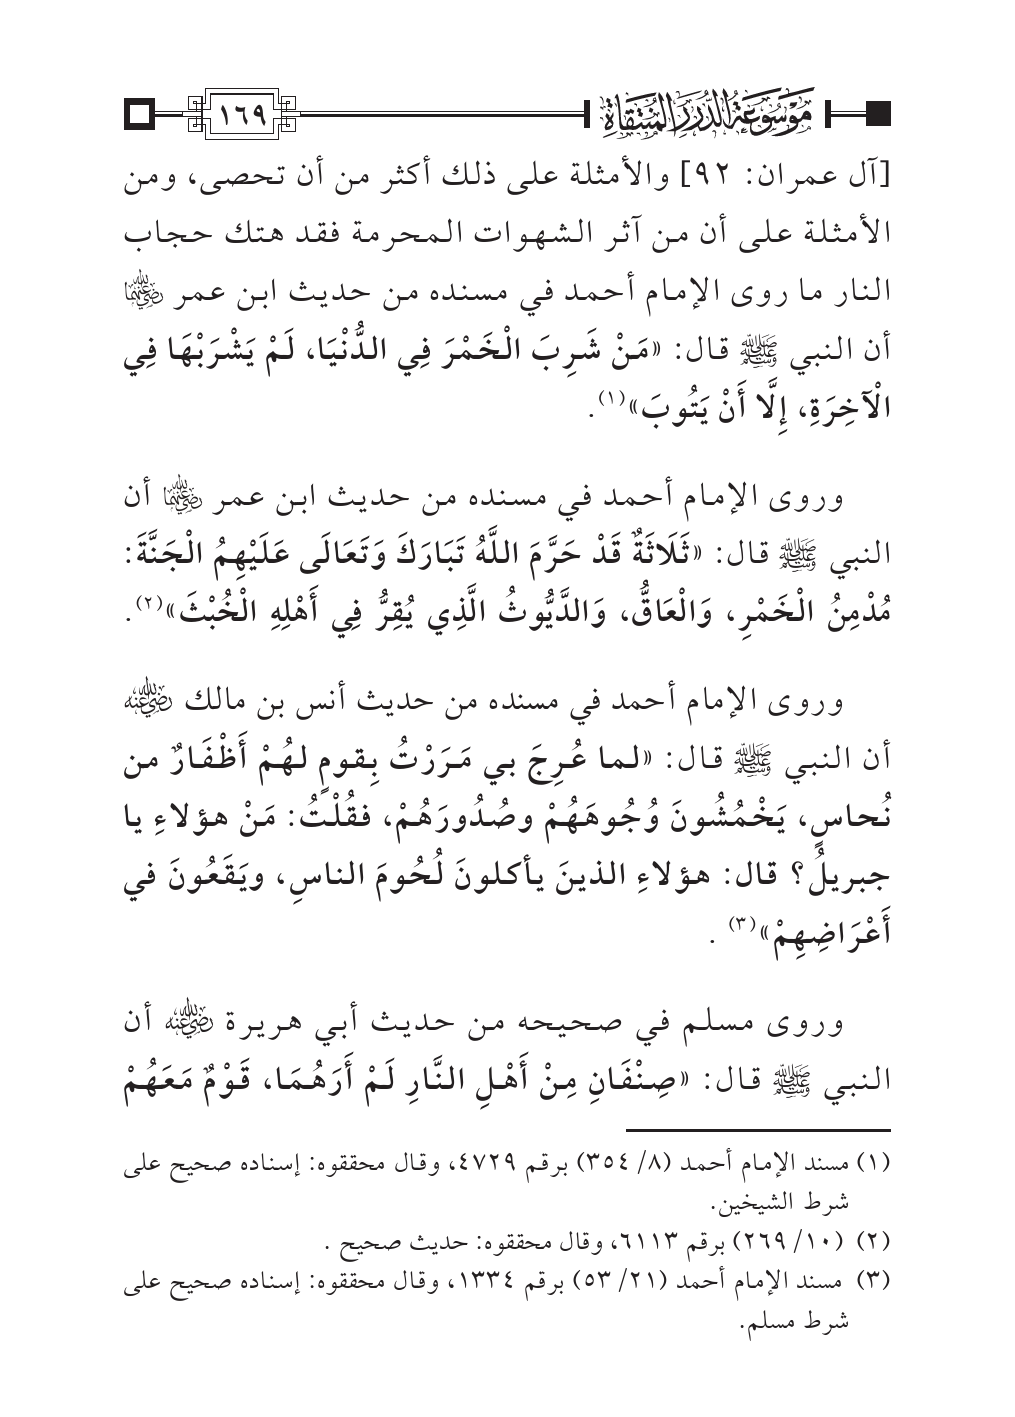 موسوعة الدرر المنتقاة
١٦٩
[آل عمران: ٩٢] والأمثلة على ذلك أكثر من أن تحصى، ومن
الأمثلة على أن من آثر الشهوات المحرمة فقد هتك حجاب
النار ما روى الإمام أحمد في مسنده من حديث ابن عمر رضي الله عنهما
أن النبي ﷺ قال: «مَنْ شَرِبَ الْخَمْرَ فِي الدُّنْيَا، لَمْ يَشْرَبْهَا فِي
الْآخِرَةِ، إِلَّا أَنْ يَتُوبَ»(١).
وروى الإمام أحمد في مسنده من حديث ابن عمر رضي الله عنهما أن
النبي ﷺ قال: «ثَلَاثَةٌ قَدْ حَرَّمَ اللَّهُ تَبَارَكَ وَتَعَالَى عَلَيْهِمُ الْجَنَّةَ:
مُدْمِنُ الْخَمْرِ، وَالْعَاقُّ، وَالدَّيُّوثُ الَّذِي يُقِرُّ فِي أَهْلِهِ الْخُبْثَ»(٢).
وروى الإمام أحمد في مسنده من حديث أنس بن مالك رضي الله عنه
أن النبي ﷺ قال: «لما عُرِجَ بي مَرَرْتُ بِقومٍ لهُمْ أَظْفَارٌ من
نُحاسٍ، يَخْمُشُونَ وُجُوهَهُمْ وصُدُورَهُمْ، فقُلْتُ: مَنْ هؤلاءِ يا
جبريلُ؟ قال: هؤلاءِ الذينَ يأكلونَ لُحُومَ الناسِ، ويَقَعُونَ في
أَعْرَاضِهِمْ»(٣) .
وروى مسلم في صحيحه من حديث أبي هريرة رضي الله عنه أن
النبي ﷺ قال: «صِنْفَانِ مِنْ أَهْلِ النَّارِ لَمْ أَرَهُمَا، قَوْمٌ مَعَهُمْ
(١) مسند الإمام أحمد (٨/ ٣٥٤) برقم ٤٧٢٩، وقال محققوه: إسناده صحيح على
شرط الشيخين.
(٢) (١٠/ ٢٦٩) برقم ٦١١٣، وقال محققوه: حديث صحيح .
(٣) مسند الإمام أحمد (٢١/ ٥٣) برقم ١٣٣٤، وقال محققوه: إسناده صحيح على
شرط مسلم.